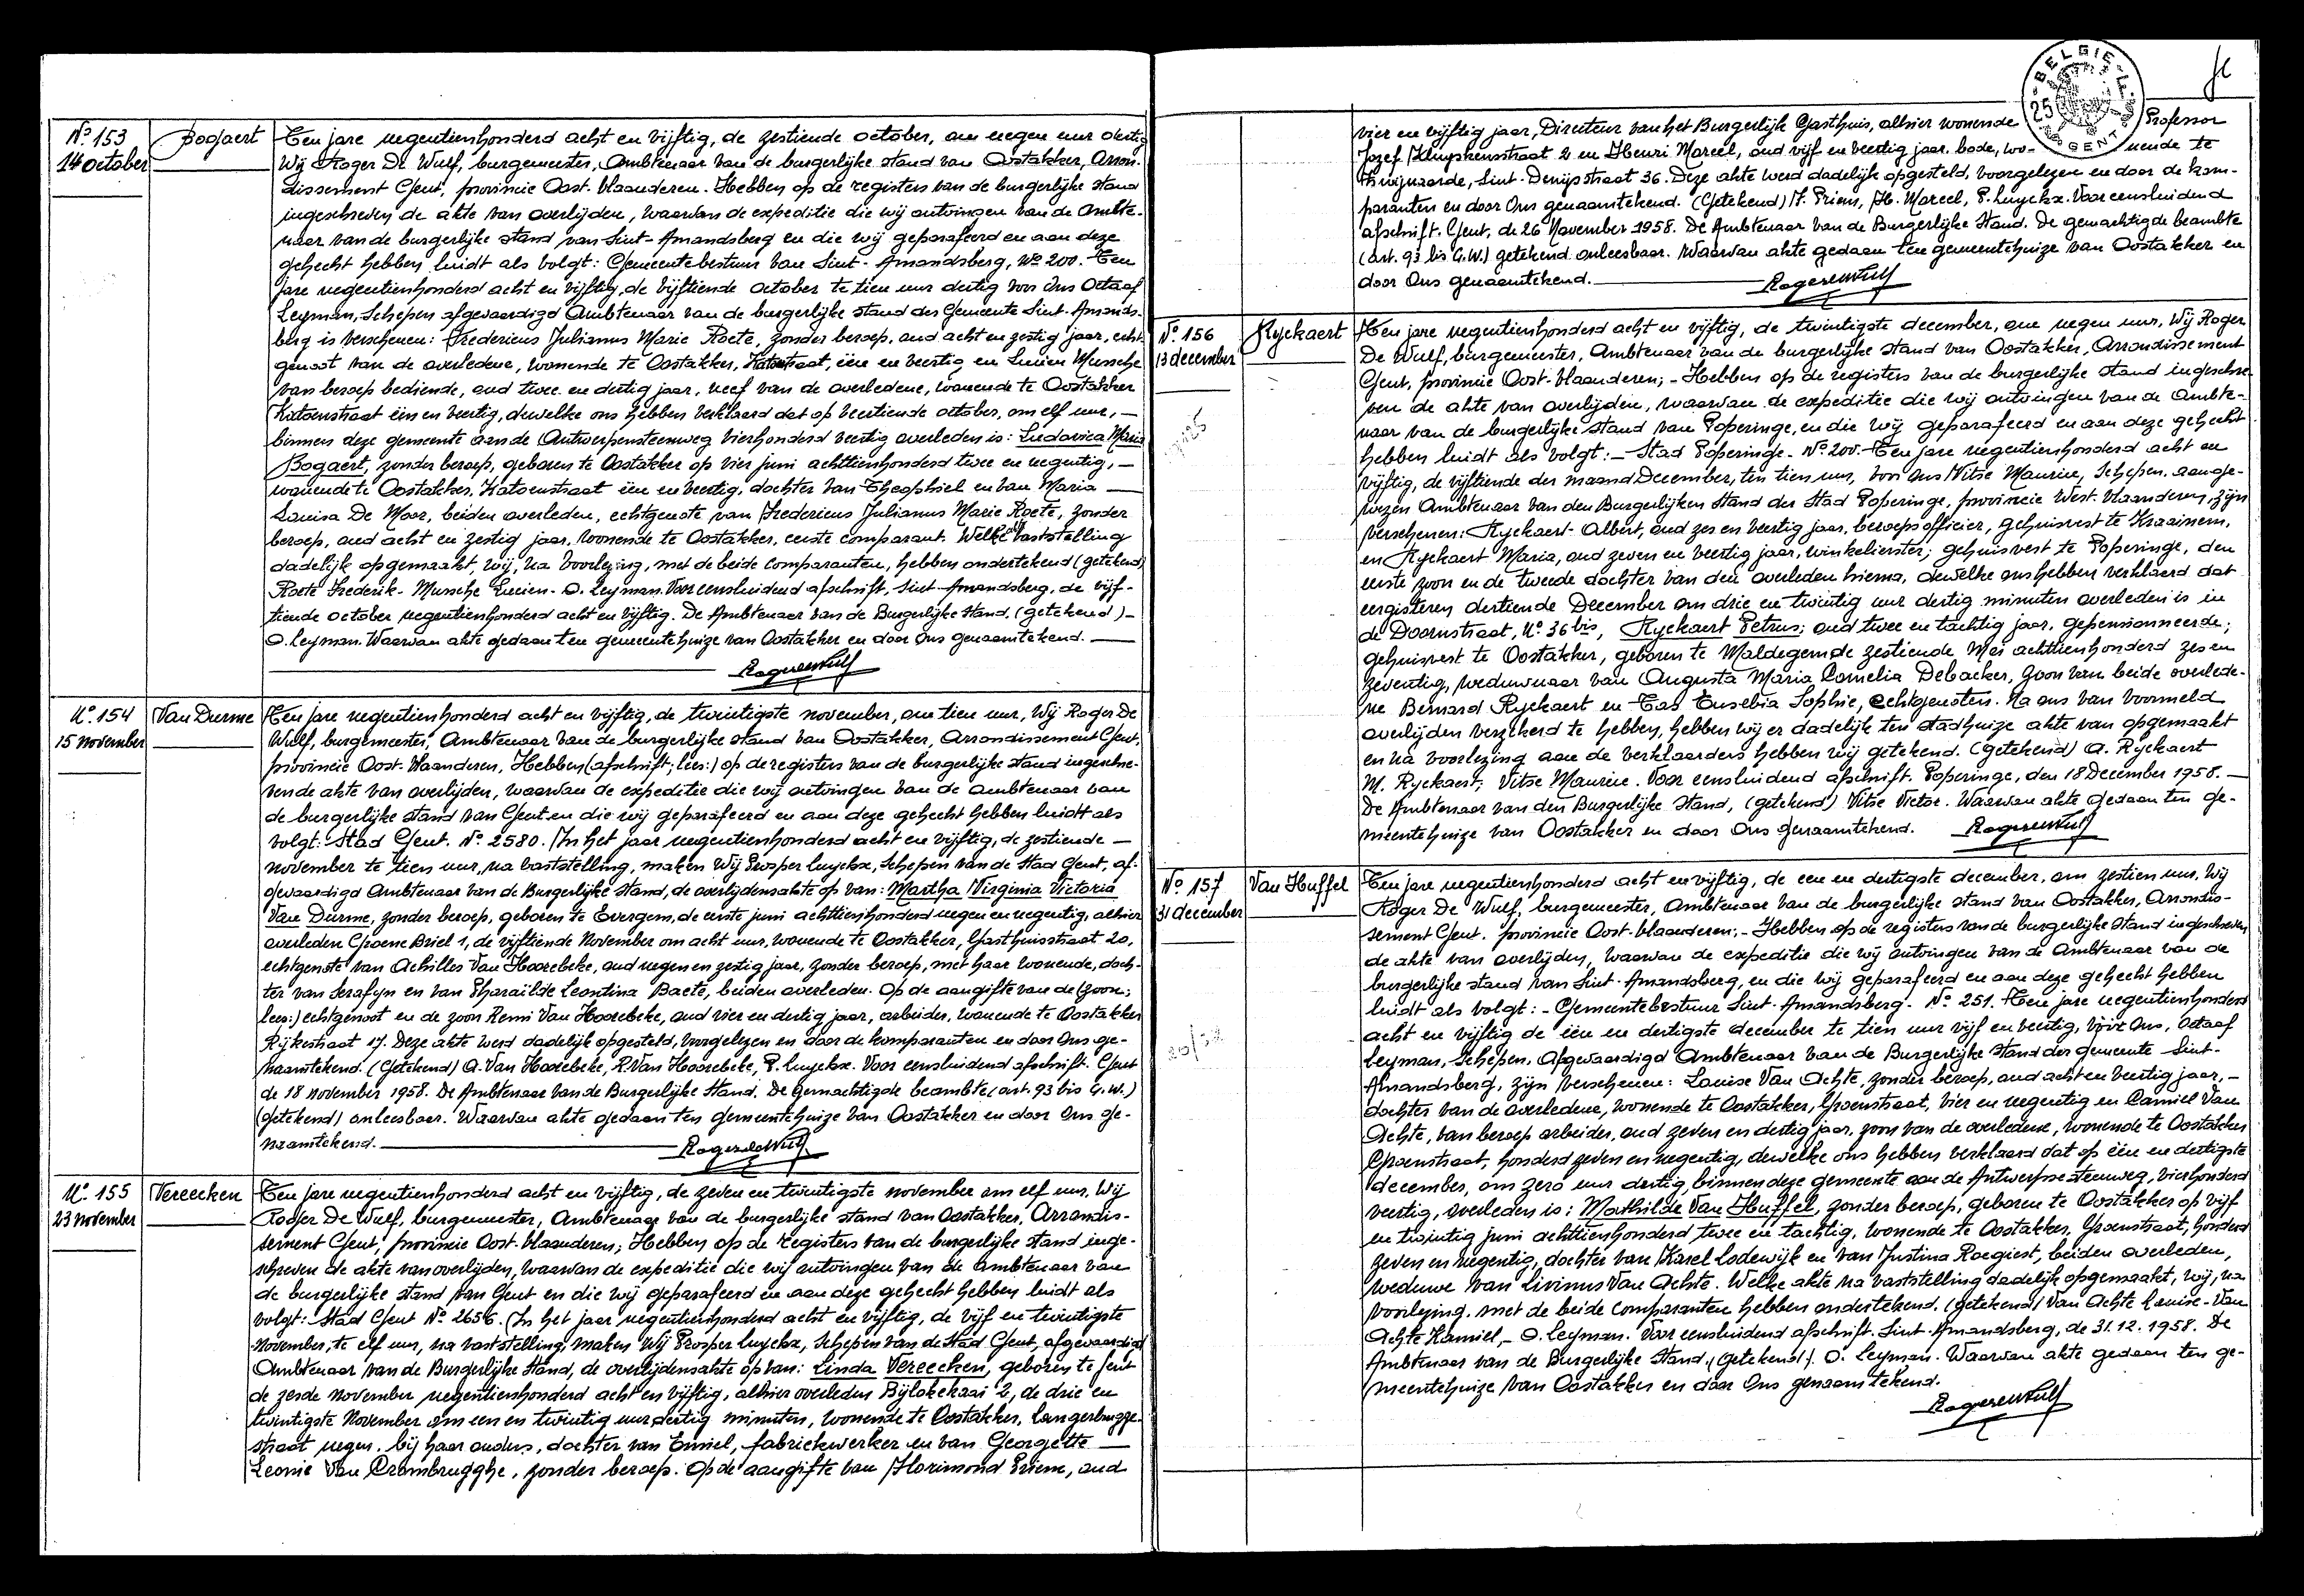 Nº 153
14 October
Bogaert
Ten jare negentienhonderd acht en vijftig, de zestiende october, om negen uur dertig
Wij Roger De Wulf, burgemeester, Ambtenaar van de burgerlijke stand van Oostakker, Arron-
dissement Gent, provincie Oost-Vlaanderen. Hebben op de registers van de burgerlijke stand
ingeschreven de akte van overlijden, waarvan de expeditie die wij ontvingen van de Ambte-
naar van de burgerlijke stand van Sint-Amandsberg en die wij geparafeerd en aan deze
gehecht hebben luidt als volgt: Gemeentebestuur van Sint-Amandsberg, Nº 200. Ten
jare negentienhonderd acht en vijftig, de vijftiende october te tien uur dertig voor Ons Octaaf
Leyman, Schepen afgevaardigd Ambtenaar van de burgerlijke stand der Gemeente Sint-Amands-
berg is verschenen: Fredericus Julianus Marie Roete, zonder beroep, oud acht en zestig jaar, echt-
genoot van de overledene, wonende te Oostakker, Katoenstraat, één en veertig en Lucien Mussche
van beroep bediende, oud twee en dertig jaar, neef van de overledene, wonende te Oostakker
Katoenstraat één en veertig, dewelke ons hebben verklaard dat op veertiende october, om elf uur, —
binnen deze gemeente aan de Antwerpensteenweg vierhonderd veertig overleden is: Ludovica Maria
Bogaert, zonder beroep, geboren te Oostakker op vier juni achttienhonderd twee en negentig, —
wonende te Oostakker, Katoenstraat één en veertig, dochter van Theophiel en van Maria —
Louisa De Moor, beiden overleden, echtgenote van Fredericus Julianus Marie Roete, zonder
beroep, oud acht en zestig jaar, wonende te Oostakker, eerste comparant. Welke vaststelling
dadelijk opgemaakt, wij, na voorlezing, met de beide comparanten, hebben ondertekend (getekend)
Roete Frederik - Mussche Lucien - O. Leyman. Voor eensluidend afschrift, Sint-Amandsberg, de vijf-
tiende october negentienhonderd acht en vijftig. De Ambtenaar van de Burgerlijke Stand, (getekend) -
O. Leyman. Waarvan akte gedaan ten gemeentehuize van Oostakker en door Ons genaamtekend. —
Nº 154
15 November
Van Durme
Ten jare negentienhonderd acht en vijftig, de twintigste november, om tien uur, Wij Roger De
Wulf, burgemeester, Ambtenaar van de burgerlijke stand van Oostakker, Arrondissement Gent,
provincie Oost-Vlaanderen, Hebben (afschrift; lees:) op de registers van de burgerlijke stand ingeschre-
ven de akte van overlijden, waarvan de expeditie die wij ontvingen van de ambtenaar van
de burgerlijke stand van Gent en die wij geparafeerd en aan deze gehecht hebben luidt als
volgt: Stad Gent. Nº 2580. In het jaar negentienhonderd acht en vijftig, de zestiende —
november te tien uur, na vaststelling, maken Wij Prosper Luyckx, Schepen van de Stad Gent, af-
gevaardigd Ambtenaar van de Burgerlijke Stand, de overlijdensakte op van: Martha Virginia Victoria
Van Durme, zonder beroep, geboren te Evergem, de eerste juni achttienhonderd negen en negentig, alhier
overleden Groene Briel 1, de vijftiende November om acht uur, wonende te Oostakker, Gasthuisstraat 20,
echtgenote van Achilles Van Hoorebeke, oud negen en zestig jaar, zonder beroep, met haar wonende, doch-
ter van Serafyn en van Pharaïlde Leontina Baete, beiden overleden. Op de aangifte van de (zoon;
lees:) echtgenoot en de zoon Remi Van Hoorebeke, oud vier en dertig jaar, arbeider, wonende te Oostakker
Rijkestraat 17. Deze akte werd dadelijk opgesteld, voorgelezen en door de komparanten en door Ons ge-
naamtekend. (Getekend) A. Van Hoorebeke, R. Van Hoorebeke, P. Luyckx. Voor eensluidend afschrift. Gent
de 18 november 1958. De Ambtenaar van de Burgerlijke Stand. De gemachtigde beambte (art. 93 bis G.W.)
(getekend) onleesbaar. Waarvan akte gedaan ten gemeentehuize van Oostakker en door Ons ge-
naamtekend.
Nº 155
23 november
Vereecken
Ten jare negentienhonderd acht en vijftig, de zeven en twintigste november om elf uur, Wij
Roger De Wulf, burgemeester, Ambtenaar van de burgerlijke stand van Oostakker, Arrondis-
sement Gent, provincie Oost-Vlaanderen; Hebben op de registers van de burgerlijke stand inge-
schreven de akte van overlijden, waarvan de expeditie die wij ontvingen van de ambtenaar van
de burgerlijke stand van Gent en die wij geparafeerd en aan deze gehecht hebben luidt als
volgt: Stad Gent Nº 2656. In het jaar negentienhonderd acht en vijftig, de vijf en twintigste
November, te elf uur, na vaststelling, maken Wij Prosper Luyckx, Schepen van de Stad Gent, afgevaardigd
Ambtenaar van de Burgerlijke Stand, de overlijdensakte op van: Linda Vereecken, geboren te Gent
de zesde november negentienhonderd acht en vijftig, alhier overleden Bijlokekaai 2, de drie en
twintigste November om een en twintig uur dertig minuten, wonende te Oostakker, Langerbrugge-
straat negen, bij haar ouders, dochter van Emiel, fabriekwerker en van Georgette —
Leonie Van Crombrugghe, zonder beroep. Op de aangifte van Florimond Priem, oud
BELGIE
25
GENT
vier en vijftig jaar, Directeur van het Burgerlijk Gasthuis, alhier wonende Professor
Jozef Kluyskensstraat 2 en Henri Marcel, oud vijf en veertig jaar, bode, wo- nende te
Zwijnaarde, Sint-Denijsstraat 36. Deze akte werd dadelijk opgesteld, voorgelezen en door de kom-
paranten en door Ons genaamtekend. (Getekend) F. Priem, H. Marcel, P. Luyckx. Voor eensluidend
afschrift. Gent, de 26 November 1958. De Ambtenaar van de Burgerlijke Stand. De gemachtigde beambte
(art. 93 bis G.W.) getekend onleesbaar. Waarvan akte gedaan ten gemeentehuize van Oostakker en
door Ons genaamtekend.
Nº 156
13 december
Ryckaert
Ten jare negentienhonderd acht en vijftig, de twintigste december, om negen uur, Wij Roger
De Wulf, burgemeester, Ambtenaar van de burgerlijke stand van Oostakker, Arrondissement
Gent, provincie Oost-Vlaanderen; - Hebben op de registers van de burgerlijke stand ingeschre-
ven de akte van overlijden, waarvan de expeditie die wij ontvingen van de Ambte-
naar van de burgerlijke stand van Poperinge, en die wij geparafeerd en aan deze gehecht
hebben luidt als volgt: - Stad Poperinge - Nº 200. - Ten jare negentienhonderd acht en
vijftig, de vijftiende der maand December, ten tien uur, voor Ons Vitse Maurice, Schepen, aange-
wezen Ambtenaar van den Burgerlijken Stand der Stad Poperinge, provincie West-Vlaanderen, zijn
verschenen: Ryckaert Albert, oud zes en veertig jaar, beroepsofficier, gehuisvest te Kraainem,
en Ryckaert Maria, oud zeven en veertig jaar, winkelierster; gehuisvest te Poperinge, den
eerste zoon en de tweede dochter van den overleden hierna, dewelke ons hebben verklaard dat
eergisteren dertiende December om drie en twintig uur dertig minuten overleden is in
de Doornstraat, Nº 36bis, Ryckaert Petrus; oud twee en tachtig jaar, gepensionneerde;
gehuisvest te Oostakker, geboren te Maldegem de zestiende Mei achttienhonderd zes en
zeventig, weduwnaar van Augusta Maria Cornelia Debacker, zoon van beide overlede-
ne Bernard Ryckaert en Cas Eusebia Sophie, echtgenoten. Na ons van voormeld
overlijden verzekerd te hebben, hebben wij er dadelijk ten stadhuize akte van opgemaakt
en na voorlezing aan de verklaarders hebben wij getekend. (getekend) A. Ryckaert
M. Ryckaert; Vitse Maurice. Voor eensluidend afschrift. Poperinge, den 18 December 1958. —
De Ambtenaar van den Burgerlijke Stand, (getekend) Vitse Victor. Waarvan akte gedaan ten ge-
meentehuize van Oostakker en door Ons genaamtekend.
Nº 157
31 december
Van Huffel
Ten jare negentienhonderd acht en vijftig, de een en dertigste december, om zestien uur, Wij
Roger De Wulf, burgemeester, Ambtenaar van de burgerlijke stand van Oostakker, Arrondis-
sement Gent, provincie Oost-Vlaanderen; - Hebben op de registers van de burgerlijke stand ingeschreven
de akte van overlijden, waarvan de expeditie die wij ontvingen van de Ambtenaar van de
burgerlijke stand van Sint-Amandsberg, en die wij geparafeerd en aan deze gehecht hebben
luidt als volgt: - Gemeentebestuur Sint-Amandsberg. Nº 251. Ten jare negentienhonderd
acht en vijftig de één en dertigste december te tien uur vijf en veertig, vóór Ons, Octaaf
Leyman, Schepen, Afgevaardigd Ambtenaar van de Burgerlijke Stand der gemeente Sint-
Amandsberg, zijn verschenen: Louise Van Achte, zonder beroep, oud acht en veertig jaar, —
dochter van de overledene, wonende te Oostakker, Groenstraat, vier en negentig en Camiel Van
Achte, van beroep arbeider, oud zeven en dertig jaar, zoon van de overledene, wonende te Oostakker
Groenstraat, honderd zeven en negentig, dewelke ons hebben verklaard dat op één en dertigste
december, om zero uur dertig, binnen deze gemeente aan de Antwerpse steenweg, vierhonderd
veertig, overleden is: Mathilde Van Huffel, zonder beroep, geboren te Oostakker op vijf
en twintig juni achttienhonderd twee en tachtig, wonende te Oostakker, Groenstraat, honderd
zeven en negentig, dochter van Karel Lodewijk en van Justina Roegiest, beiden overleden,
weduwe van Livinus Van Achte. Welke akte na vaststelling dadelijk opgemaakt, wij, na
voorlezing, met de beide comparanten hebben ondertekend. (getekend) Van Achte Louise - Van
Achte Kamiel, - O. Leyman. Voor eensluidend afschrift. Sint-Amandsberg, de 31.12.1958. De
Ambtenaar van de Burgerlijke Stand, (getekend). O. Leyman. Waarvan akte gedaan ten ge-
meentehuize van Oostakker en door Ons genaamtekend.